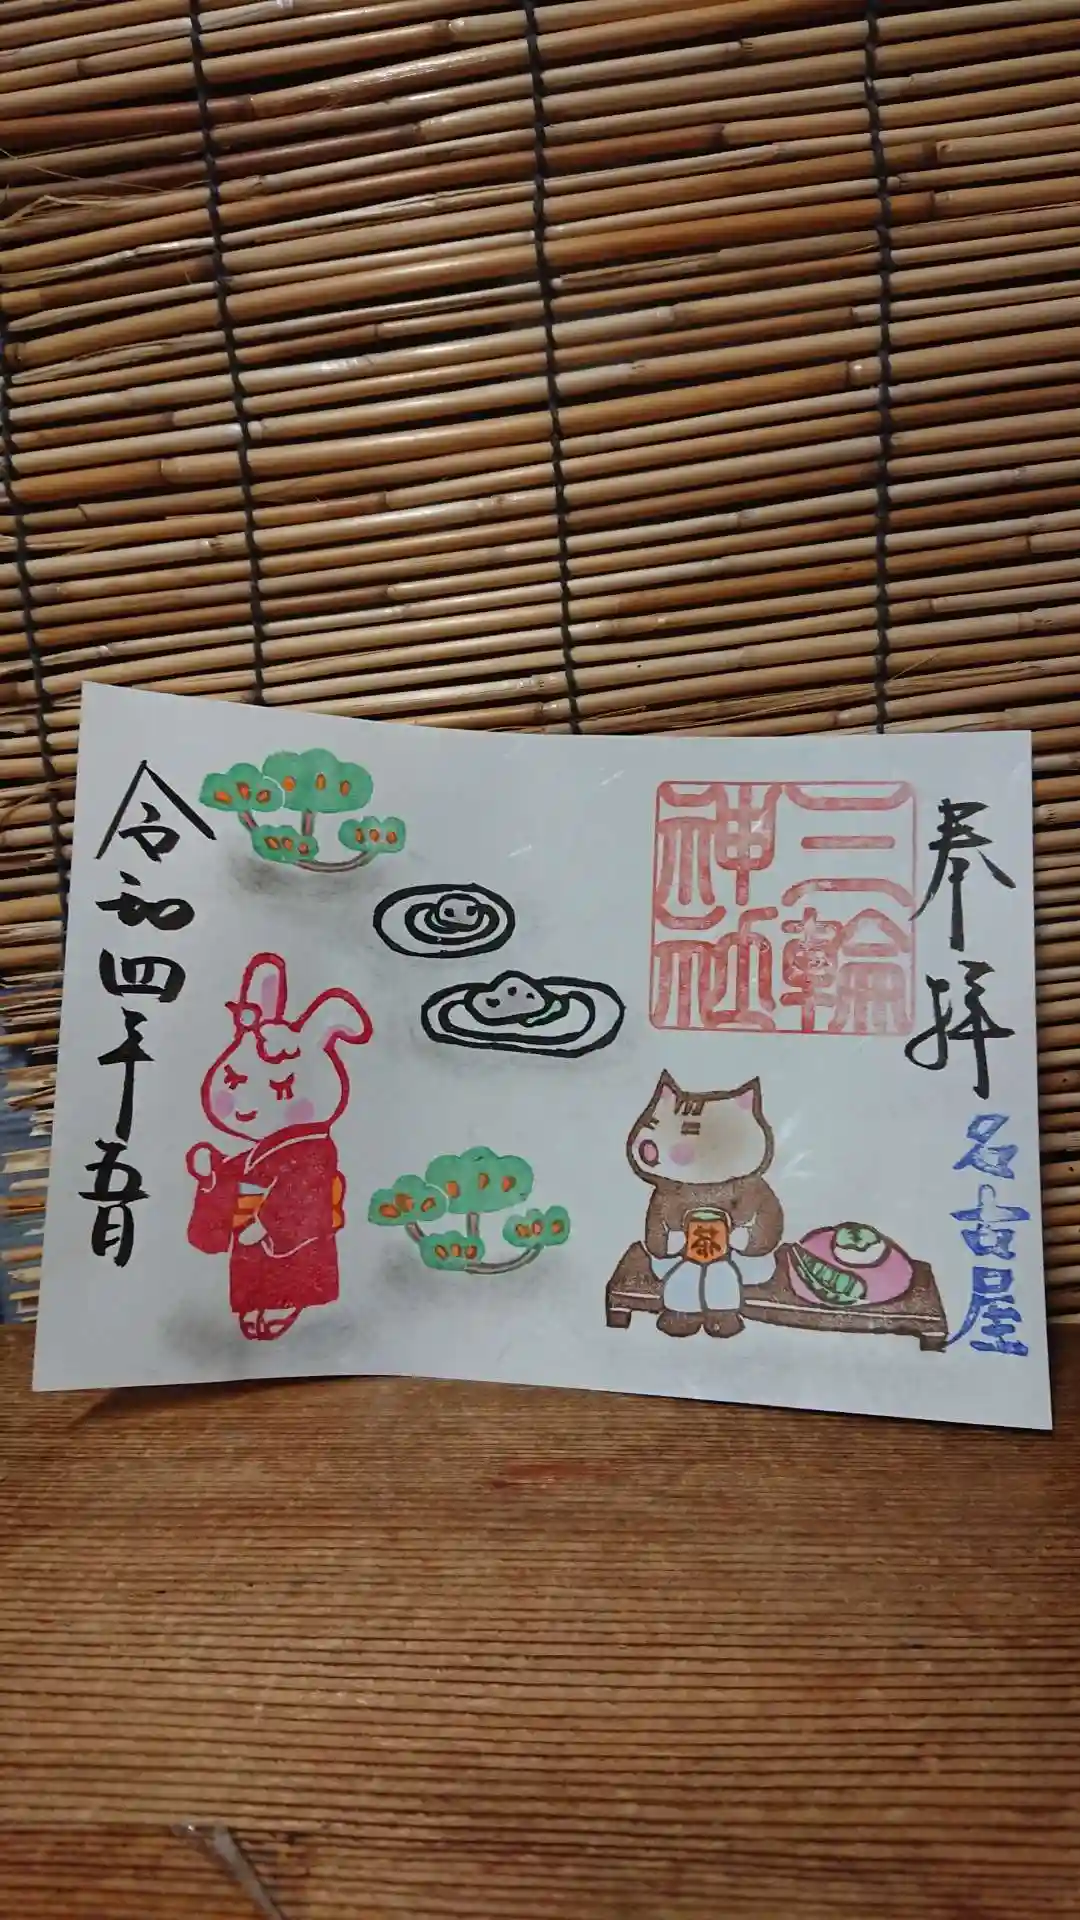 奉拝
名古屋
三輪
神社
茶
令和四年五月